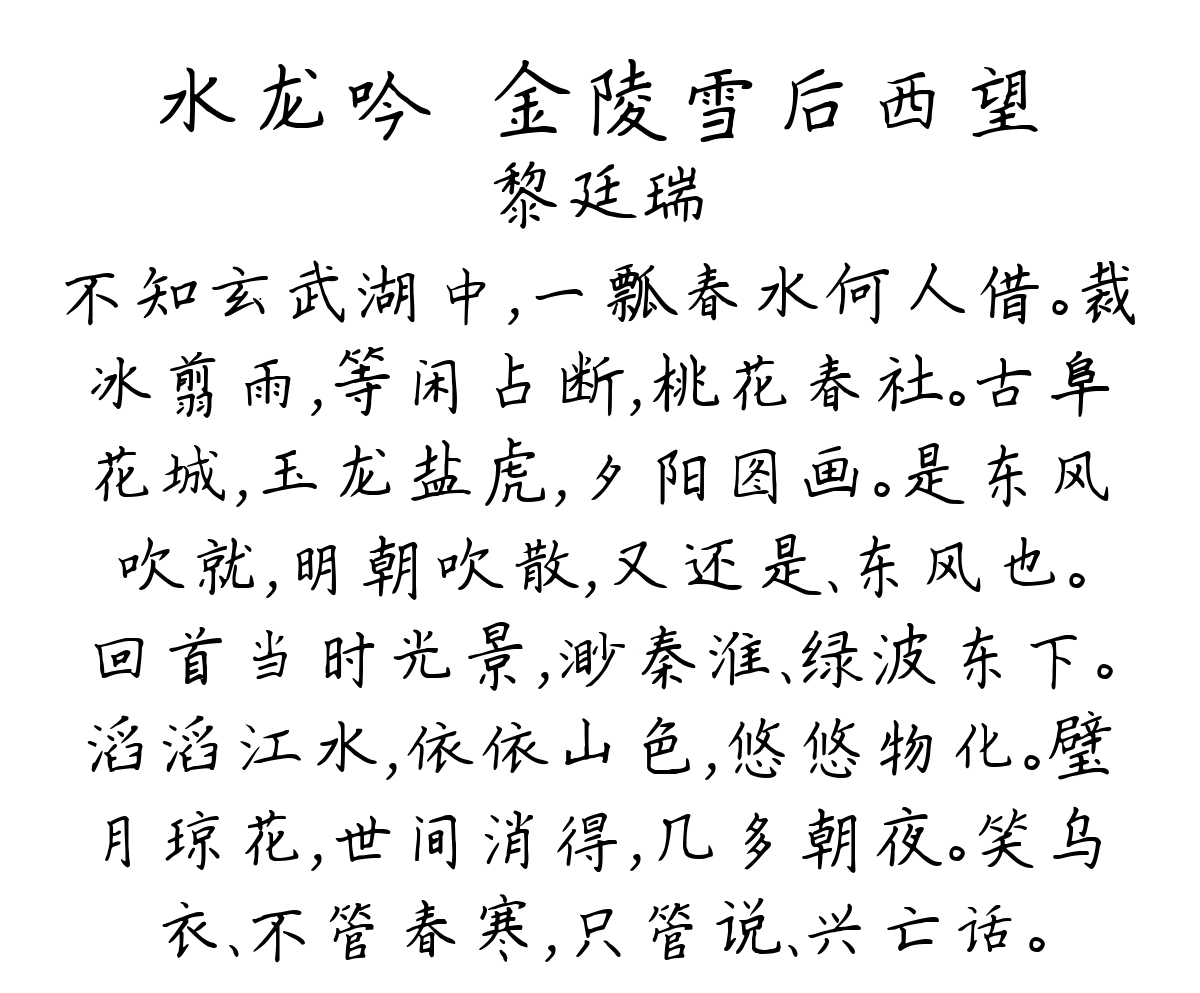 水龙吟 金陵雪后西望
黎廷瑞
不知玄武湖中,一瓢春水何人借。裁
冰翦雨,等闲占断,桃花春社。古阜
花城,玉龙盐虎,夕阳图画。是东风
吹就,明朝吹散,又还是、东风也。
回首当时光景,渺秦淮、绿波东下。
滔滔江水,依依山色,悠悠物化。璧
月琼花,世间消得,几多朝夜。笑乌
衣、不管春寒,只管说、兴亡话。